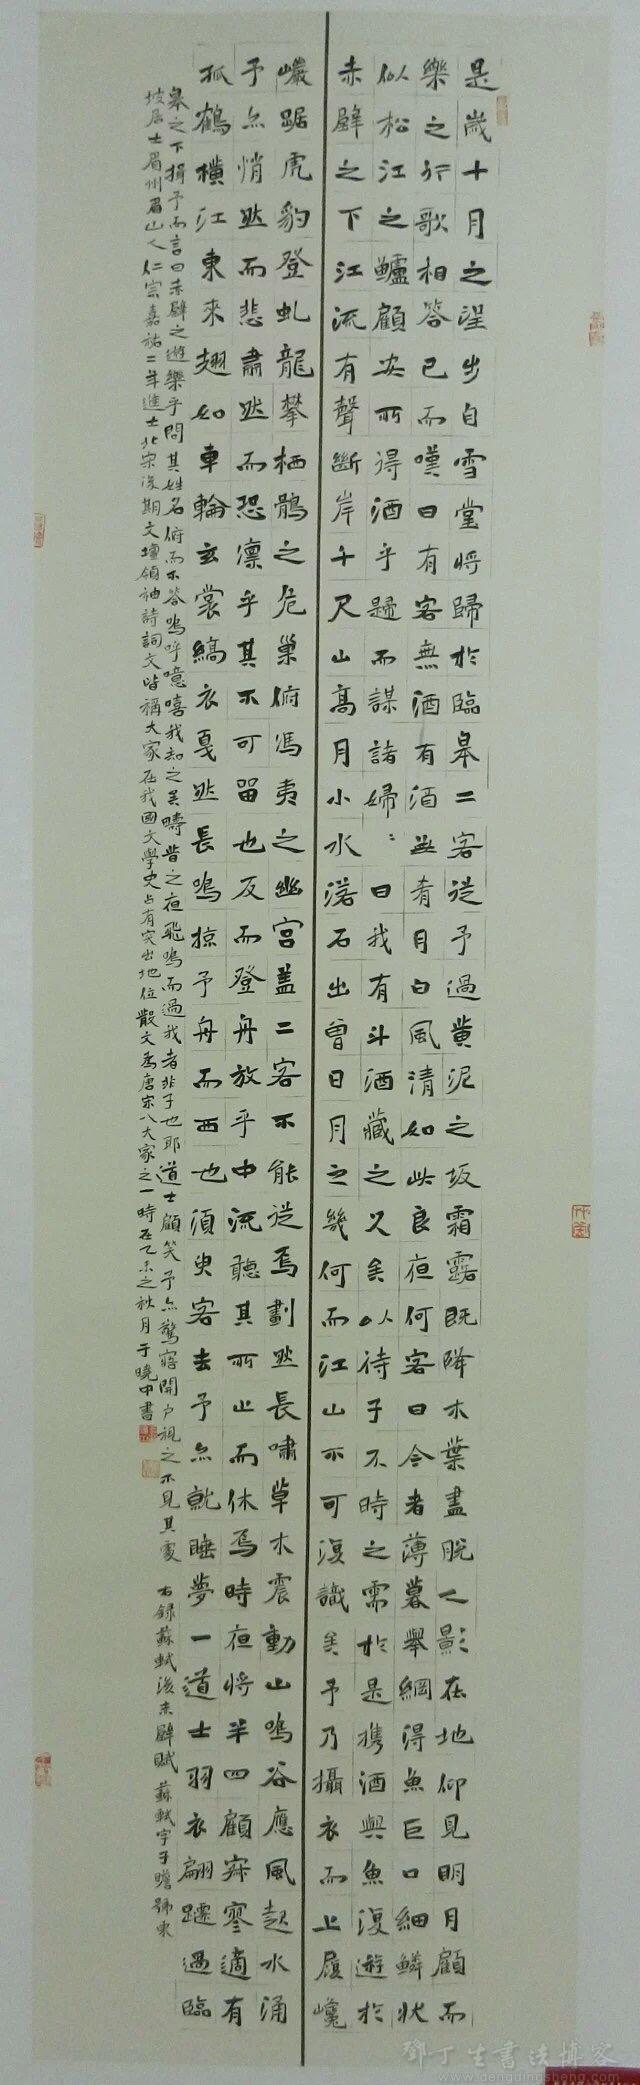 是歲十月之望步自雪堂將歸於臨皋二客從予過黃泥之坂霜露既降木葉盡脫人影在地仰見明月顧而
樂之行歌相答已而嘆曰有客無酒有酒無肴月白風清如此良夜何客曰今者薄暮舉網得魚巨口細鱗狀
似松江之鱸顧安所得酒乎歸而謀諸婦〻曰我有斗酒藏之久矣以待子不時之需於是攜酒與魚復遊於
赤壁之下江流有聲斷岸千尺山高月小水落石出曾日月之幾何而江山不可復識矣予乃攝衣而上履巉
巖踞虎豹登虬龍攀栖鶻之危巢俯馮夷之幽宮蓋二客不能從焉劃然長嘯草木震動山鳴谷應風起水涌
予亦悄然而悲肅然而恐凛乎其不可留也反而登舟放乎中流聽其所止而休焉時夜將半四顧寂寥適有
孤鶴橫江東來翅如車輪玄裳縞衣戛然長鳴掠予舟而西也須臾客去予亦就睡夢一道士羽衣翩躚過臨
皋之下揖予而言曰赤壁之遊樂乎問其姓名俯而不答嗚呼噫嘻我知之矣疇昔之夜飛鳴而過我者非子也耶道士顧笑予亦驚寤開戶視之不見其處 右録蘇軾後赤壁賦 蘇軾字子瞻號東
坡居士眉州眉山人仁宗嘉祐二年進士北宋後期文壇領袖詩詞文皆稱大家在我國文學史占有突出地位散文爲唐宋八大家之一時在乙未之秋月于曉中書
鄧丁生書法博客
www.dengdingsheng.com